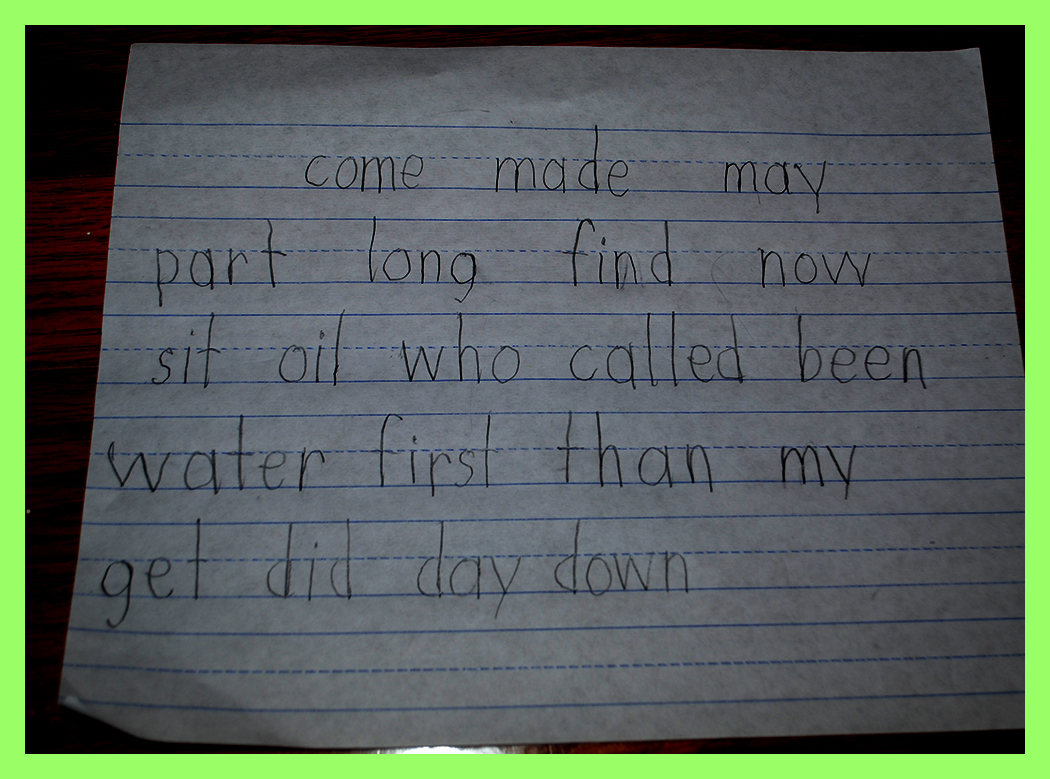 come made may
part long find now
sit oil who called been
water first than my
get did day down